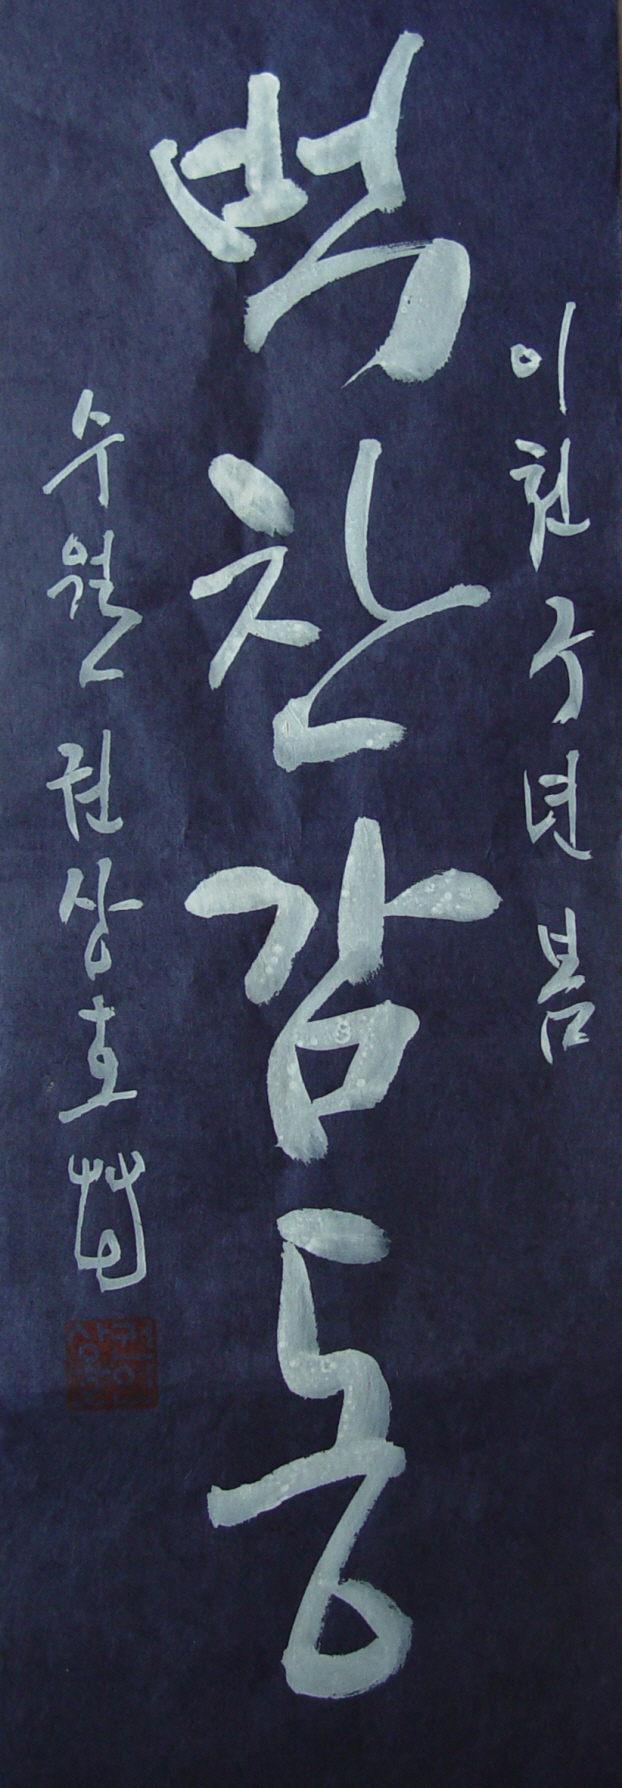 이천구년봄
벅찬감동
수월 권상호